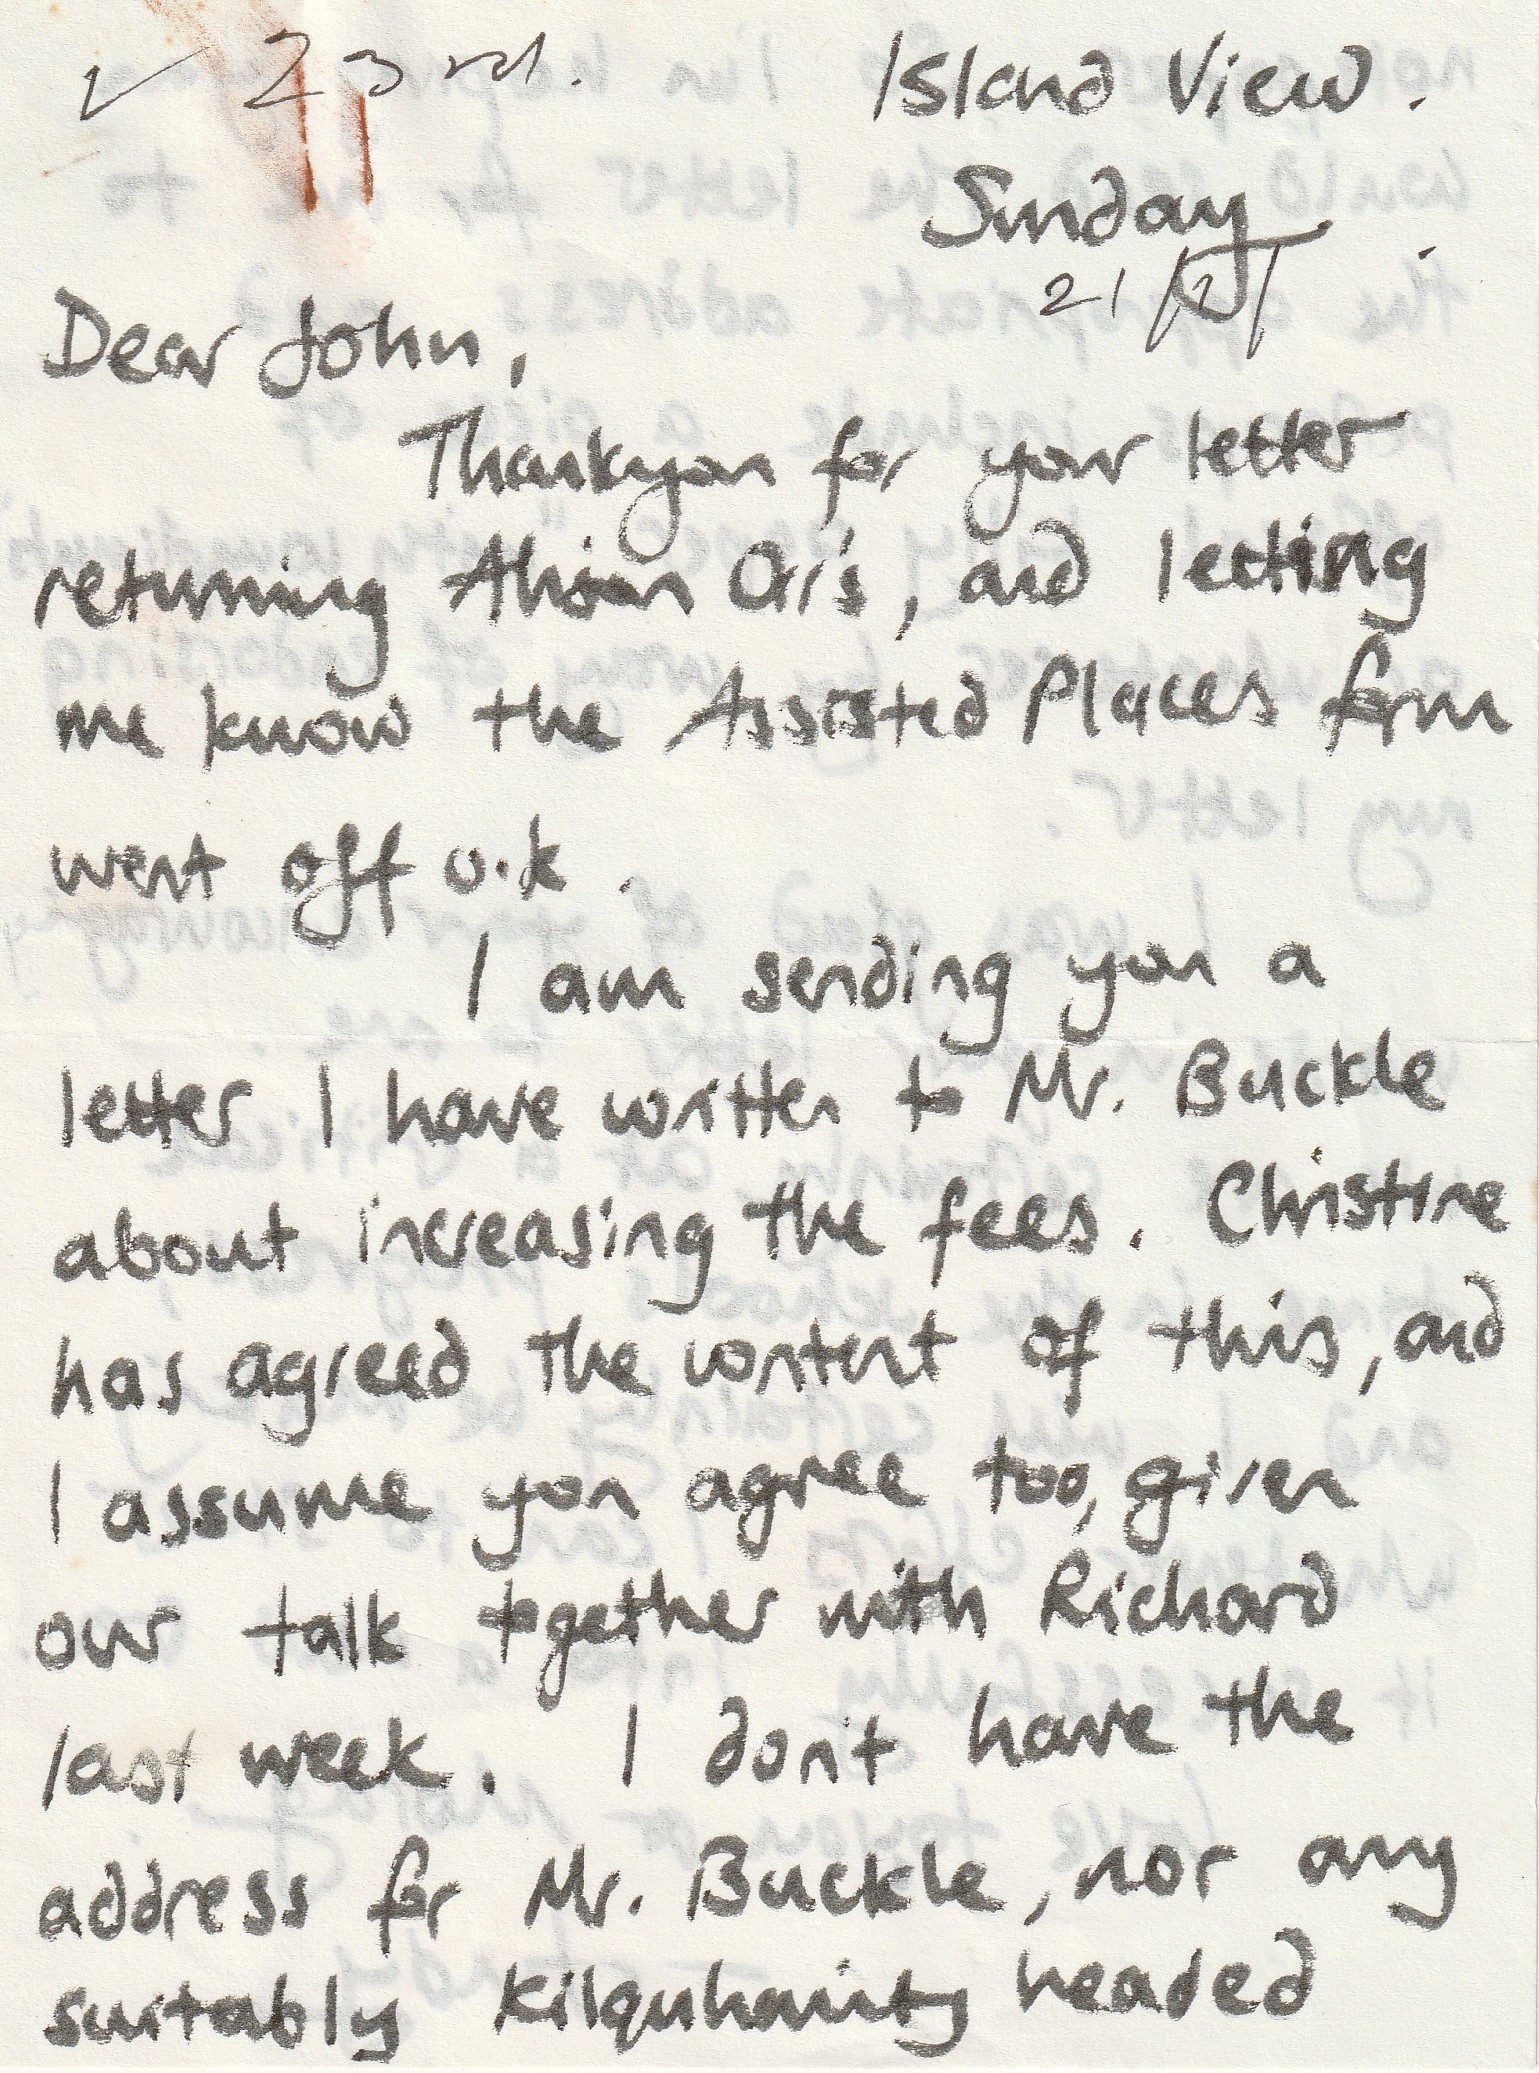 ✓ 23rd.
Island View.
Sunday
21/2/
Dear John,
Thankyou for your letter
returning Orr's, and letting
me know the Assisted Places form
went off o.k.
I am sending you a
letter I have written to Mr. Buckle
about increasing the fees. Christine
has agreed the content of this, and
I assume you agree too, given
our talk together with Richard
last week. I don't have the
address for Mr. Buckle, nor any
suitably Kilquhanity headed